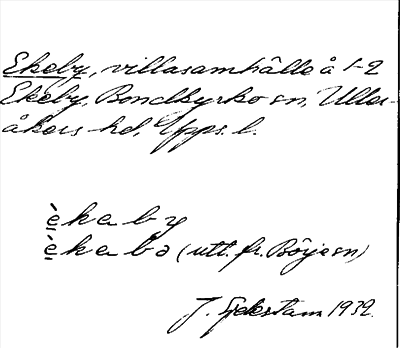 Ekeby, villasamhälle å 1-2
Ekeby, Bondkyrko sn, Uller-
åkers hd, Upps. l.
è̱keby
è̱kebə (utt. fr. Börje sn)
J. 1932.